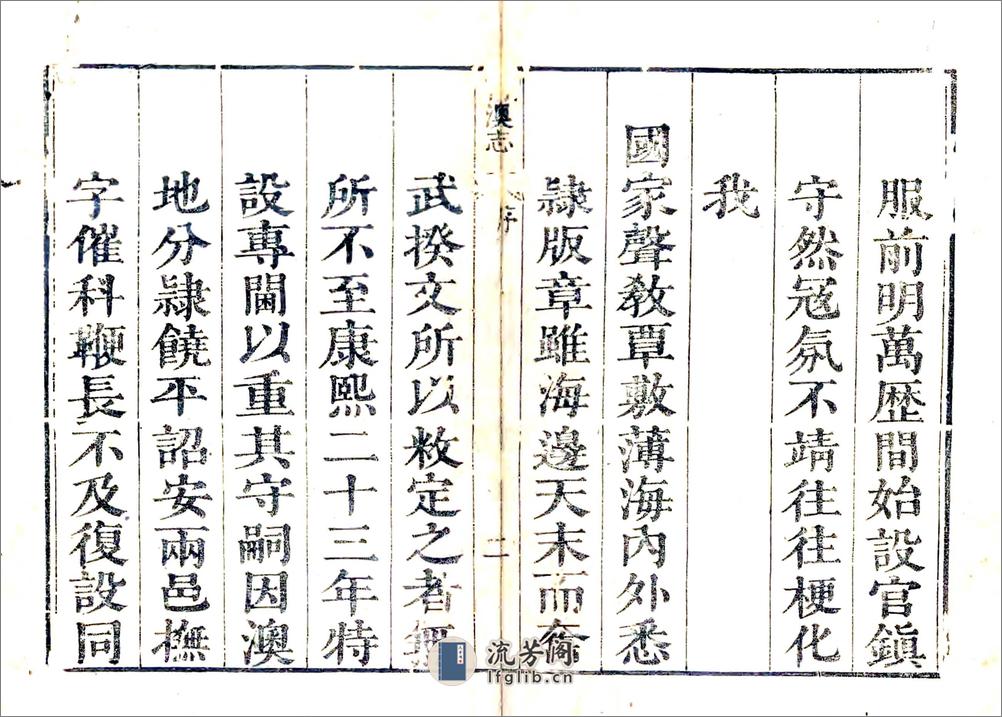 服前明萬歷間始設官鎮
守然冦氛不靖往往梗化
我
國家聲敎覃敷薄海內外悉
隷版章雖海邊天末而奮
澳志
序
二
武揆文所以敉定之者無
所不至康熙二十三年特
設專閫以重其守嗣因澳
地分隷饒平詔安兩邑撫
字催科鞭長不及復設同
流芳阁
lfglib.cn